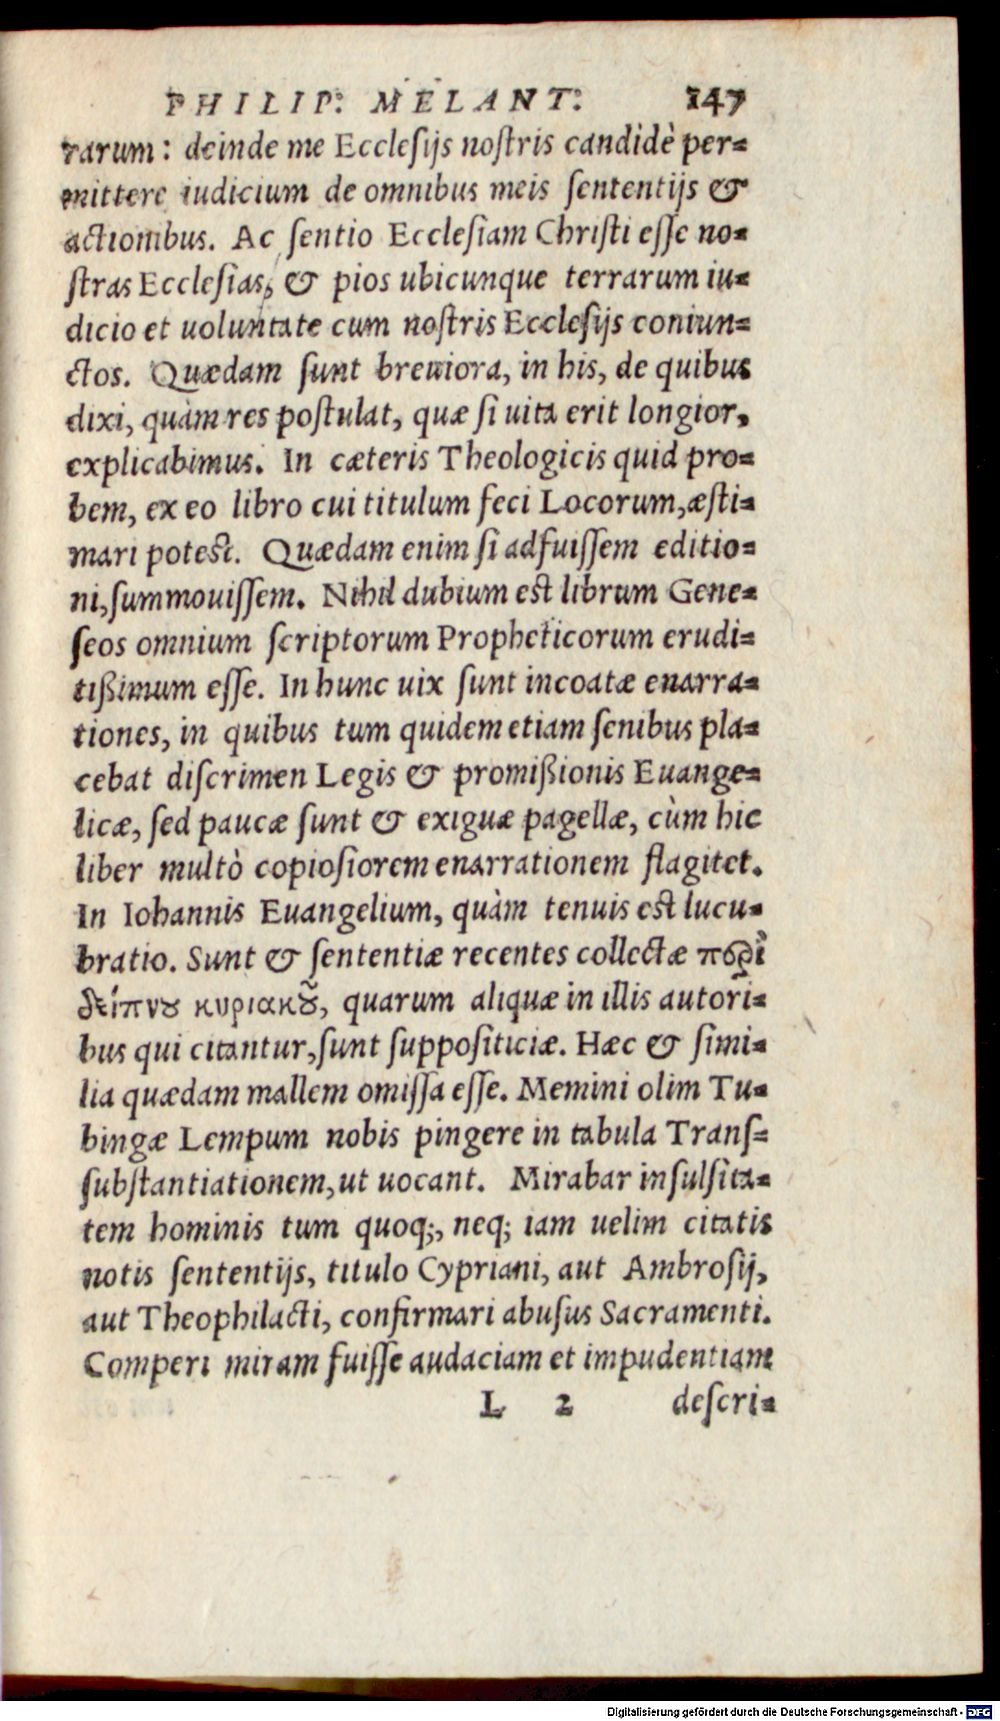 PHILIP: MELANT: 147
rarum: deinde me Ecclesijs nostris candidè per-
mittere iudicium de omnibus meis sententijs &
actionibus. Ac sentio Ecclesiam Christi esse no-
stras Ecclesias, & pios ubicunque terrarum iu-
dicio et uoluntate cum nostris Ecclesijs coniun-
ctos. Quædam sunt breuiora, in his, de quibus
dixi, quàm res postulat, quæ si uita erit longior,
explicabimus. In cæteris Theologicis quid pro-
bem, ex eo libro cui titulum feci Locorum, æsti-
mari potest. Quædam enim si adfuissem editio-
ni, summouissem. Nihil dubium est librum Gene-
seos omnium scriptorum Propheticorum erudi-
tißimum esse. In hunc uix sunt incoatæ enarra-
tiones, in quibus tum quidem etiam senibus pla-
cebat discrimen Legis & promißionis Euange-
licæ, sed paucæ sunt & exiguæ pagellæ, cùm hic
liber multò copiosiorem enarrationem flagitet.
In Iohannis Euangelium, quàm tenuis est lucu-
bratio. Sunt & sententiæ recentes collectæ περὶ
δείπνȣ κυριακȣ̃, quarum aliquæ in illis autori-
bus qui citantur, sunt suppositiciæ. Hæc & simi-
lia quædam mallem omissa esse. Memini olim Tu-
bingæ Lempum nobis pingere in tabula Trans-
substantiationem, ut uocant. Mirabar insulsita-
tem hominis tum quoq;, neq; iam uelim citatis
notis sententijs, titulo Cypriani, aut Ambrosij,
aut Theophilacti, confirmari abusus Sacramenti.
Comperi miram fuisse audaciam et impudentiam
L 2 descri-
Digitalisierung gefördert durch die Deutsche Forschungsgemeinschaft - DFG